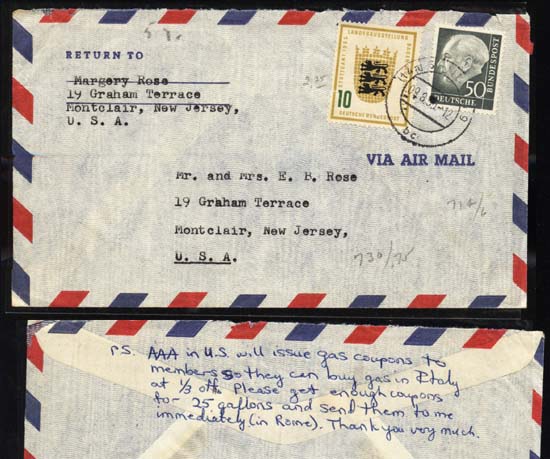 5 f.
RETURN TO
Margery Rose
19 Graham Terrace
Montclair, New Jersey,
U. S. A.
2,25
LANDESAUSSTELLUNG
10
DEUTSCHE BUNDESPOST
DEUTSCHE
BUNDESPOST
50
VIA AIR MAIL
Mr. and Mrs. E. B. Rose
19 Graham Terrace
Montclair, New Jersey,
U. S. A.
714/6
730/75
P.S. AAA in U.S. will issue gas coupons to
members so they can buy gas in Italy
at 1/3 off. Please get enough coupons
for 25 gallons and send them to me
immediately (in Rome). Thank you very much.